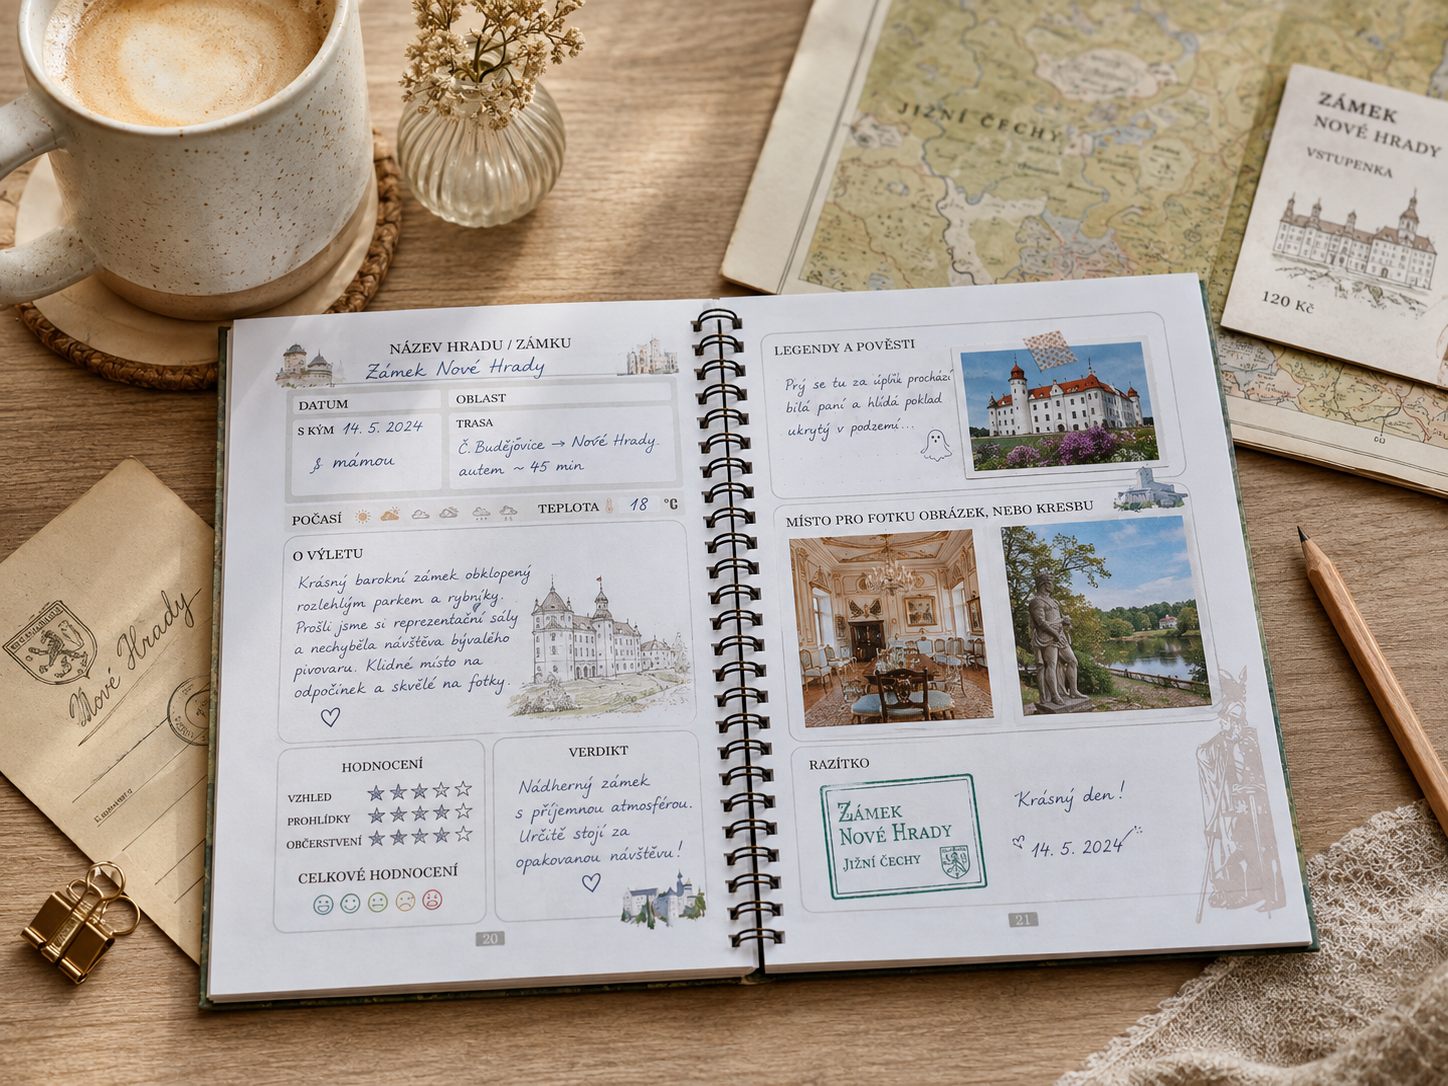 JIŽNÍ ČECHY
ZÁMEK
NOVÉ HRADY
VSTUPENKA
120 Kč
Nové Hrady
NÁZEV HRADU / ZÁMKU
Zámek Nové Hrady
DATUM
OBLAST
S KÝM 14. 5. 2024
s mámou
TRASA
Č. Budějovice → Nové Hrady.
autem ~ 45 min
POČASÍ
TEPLOTA 18 °C
O VÝLETU
Krásný barokní zámek obklopený
rozlehlým parkem a rybníky.
Prošli jsme si reprezentační sály
a nechyběla návštěva bývalého
pivovaru. Klidné místo na
odpočinek a skvělé na fotky.
HODNOCENÍ
VZHLED
PROHLÍDKY
OBČERSTVENÍ
CELKOVÉ HODNOCENÍ
VERDIKT
Nádherný zámek
s příjemnou atmosférou.
Určitě stojí za
opakovanou návštěvu!
20
LEGENDY A POVĚSTI
Prý se tu za úplňk prochází
bílá paní a hlídá poklad
ukrytý v podzemí...
MÍSTO PRO FOTKU OBRÁZEK, NEBO KRESBU
RAZÍTKO
ZÁMEK
NOVÉ HRADY
JIŽNÍ ČECHY
Krásný den!
14. 5. 2024
21